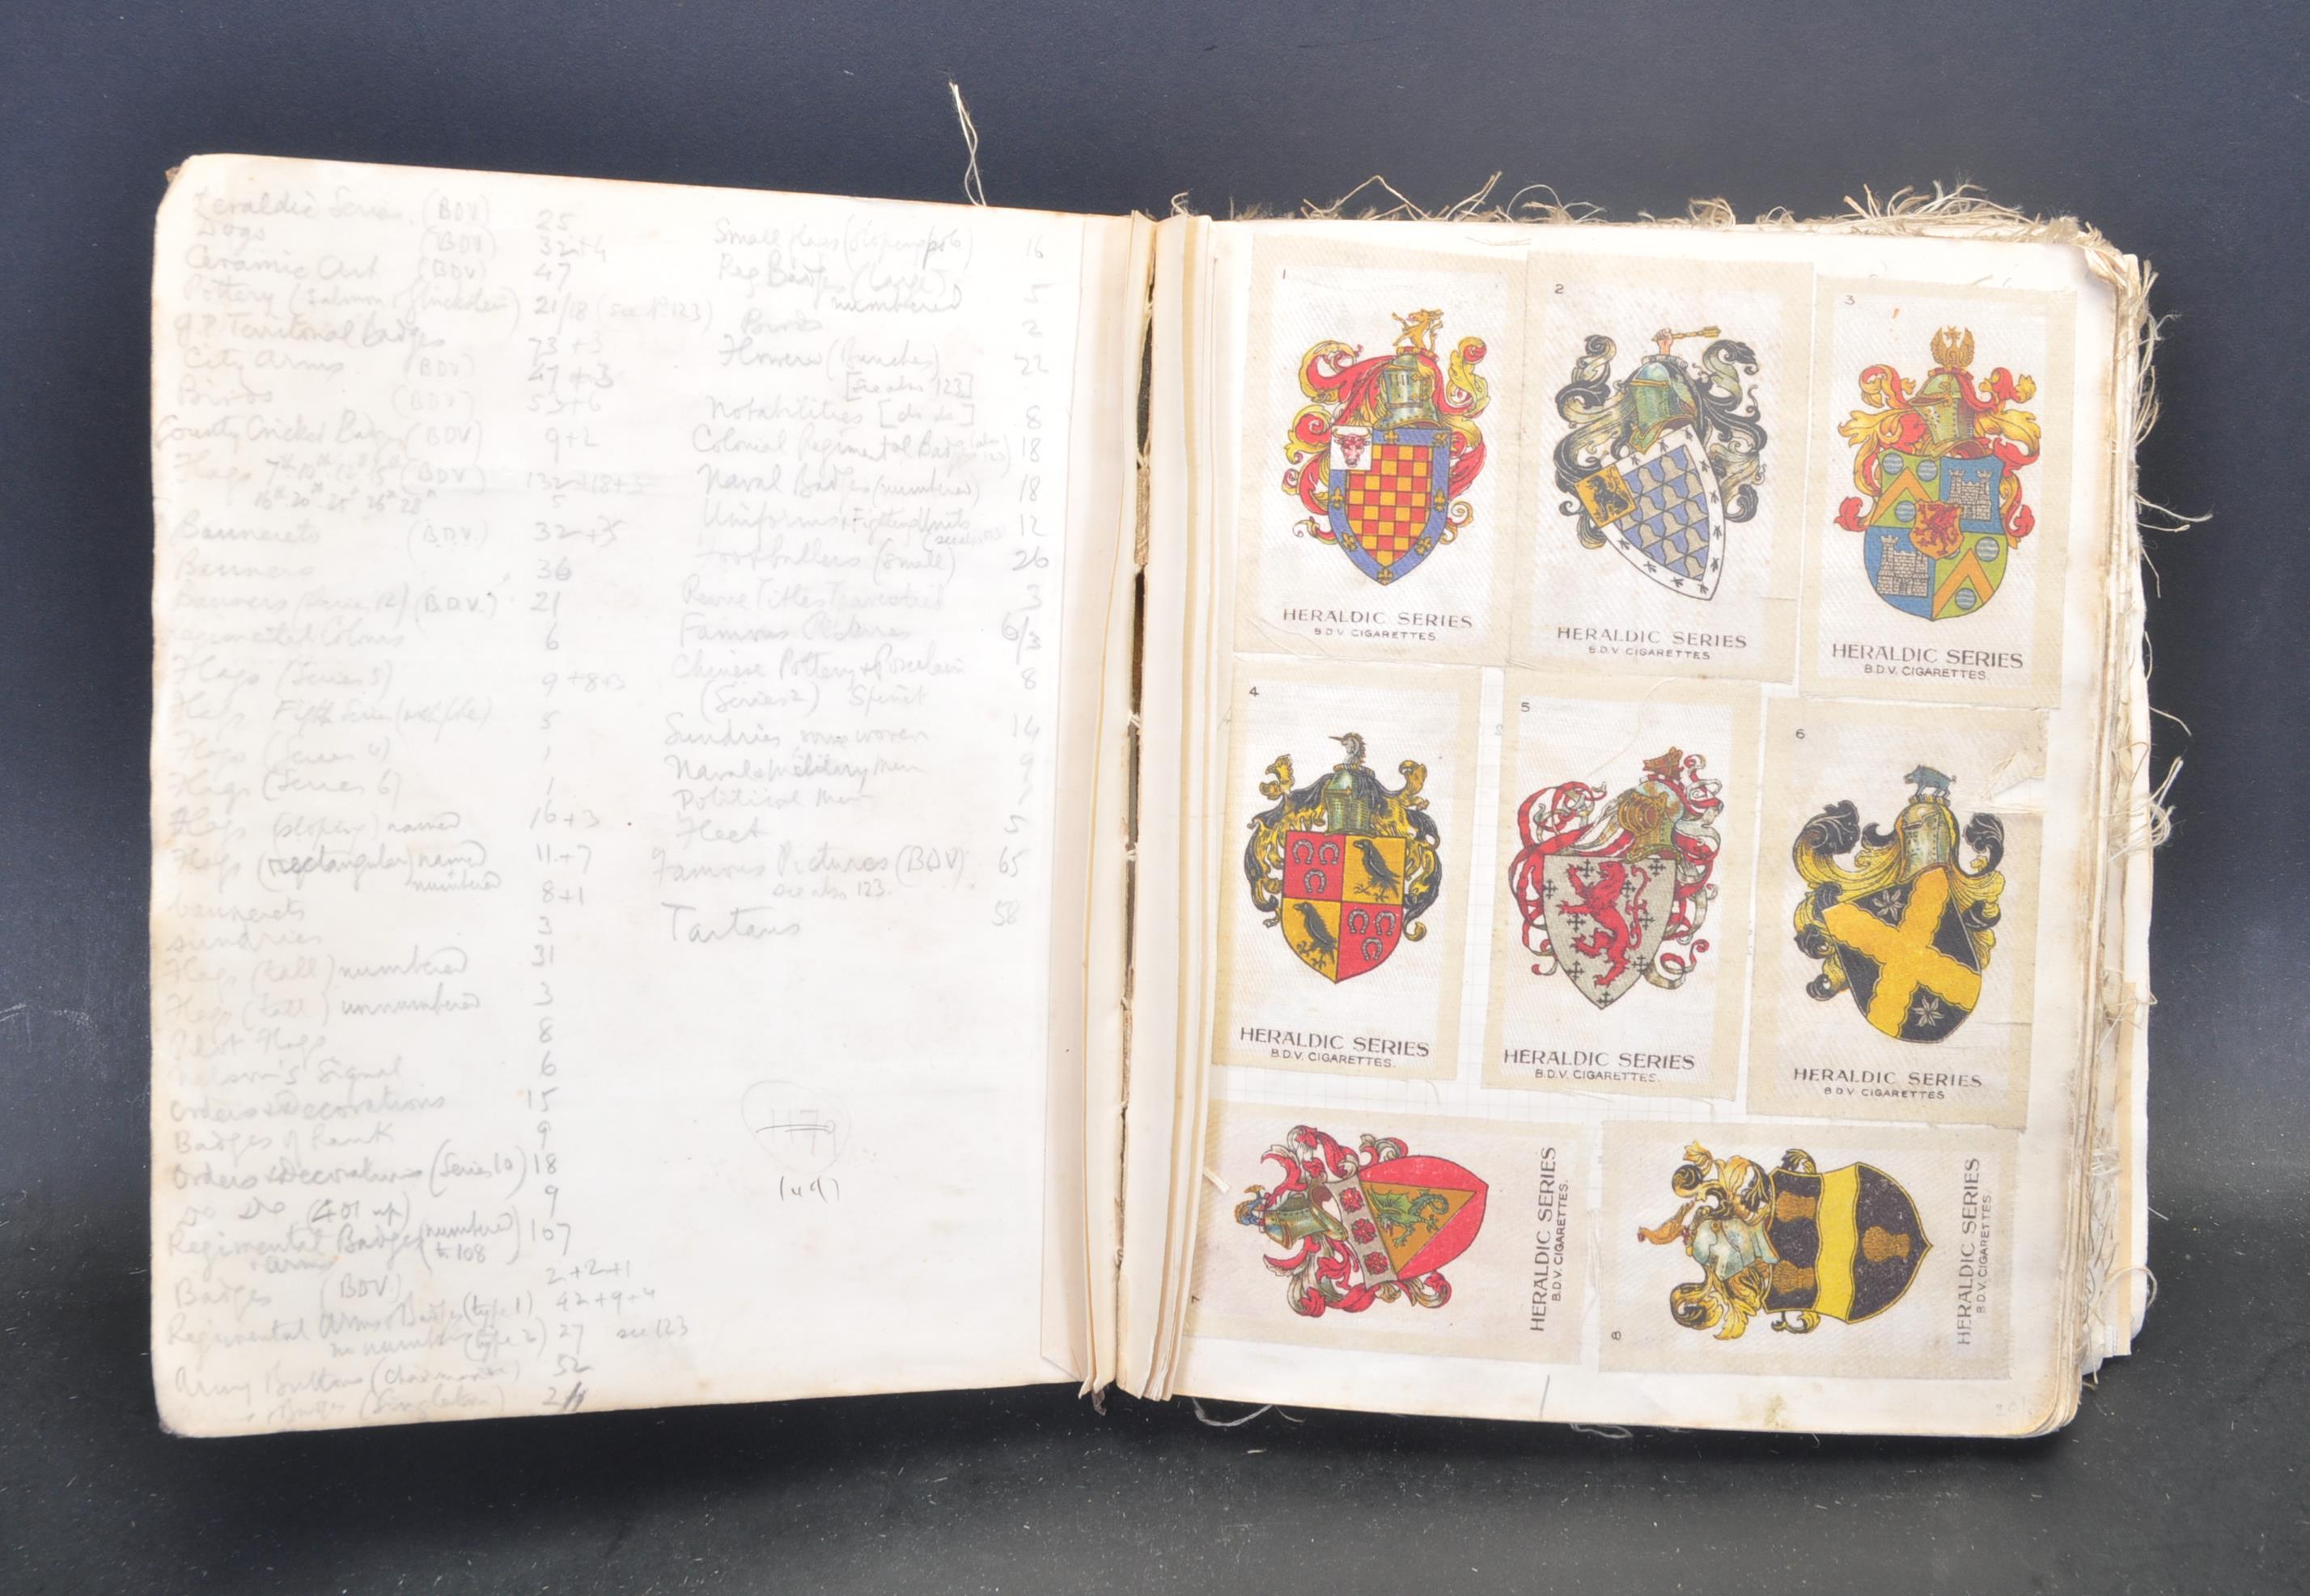 Heraldic Series. (BDV) 25
Dogs (BDV) 32+4
Ceramic Art (BDV) 47
Pottery (Salmon & Gluckstein) 21/18 (see No 123)
G.P. Territorial badges 73+3
City Arms (BDV) 47+3
Birds (BDV) 53+6
County Cricket Badges (BDV) 9+2
Flags (BDV)
Bannerets (B.D.V.) 32+35
Banners 36
Banners (B.D.V.) 21
Regimental Colours 6
Flags (Series 5) 9+8+3
Flags Fifth Series 5
Flags (Series 4) 1
Flags (Series 6) 1
Flags (sloping) named 16+3
Flags (rectangular) named 11+7
numbered 8+1
bannerets 3
sundries
Flags (tall) numbered 31
Flags (tall) unnumbered 3
Pilot Flags 8
Nelson's Signal 6
Orders & Decorations 15
Badges of Rank 9
Orders & Decorations (Series 10) 18
Do Do (401 up) 9
Regimental Badges (numbered to 108) 107
arms
Badges (BDV) 2+2+1
Regimental Arms & Badges (type 1) 42+9+4
no number (type 2) 27 see 123
Army Buttons 52
Badges (Singleton)
Small flags (sloping pole) 16
Reg Badges (large) numbered 5
Birds 2
Flowers (Bunches) 22
[see also 123]
Notabilities [do do] 8
Colonial Regimental Badges 18
Naval Badges (numbered) 18
Uniforms, Fighting Units 12
Footballers (small) 26
Revue Titles Travestied 3
Famous 6/3
Chinese Pottery & Porcelain 8
(Series 2) Spirit
Sundries woven 14
Naval & Military Men 9
Political Men 1
Fleet 5
Famous Pictures (BDV) 65
see also 123.
Tartans 58
1179
1
HERALDIC SERIES
B.D.V. CIGARETTES
2
HERALDIC SERIES
B.D.V. CIGARETTES
3
HERALDIC SERIES
B.D.V. CIGARETTES.
4
HERALDIC SERIES
B.D.V. CIGARETTES.
5
HERALDIC SERIES
B.D.V. CIGARETTES.
6
HERALDIC SERIES
B.D.V. CIGARETTES
7
HERALDIC SERIES
B.D.V. CIGARETTES.
8
HERALDIC SERIES
B.D.V. CIGARETTES.